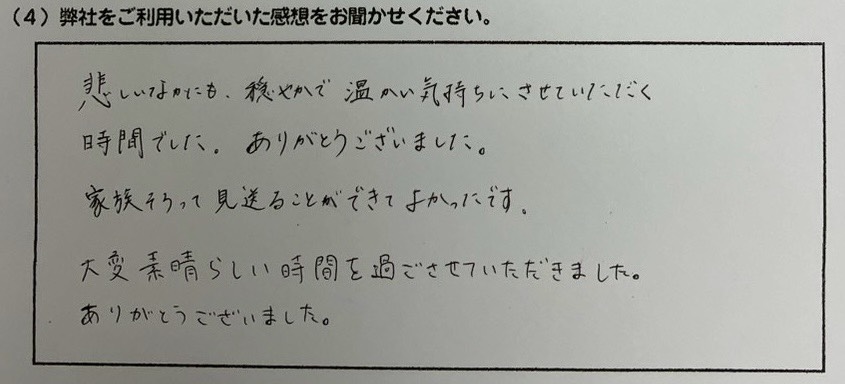 （4）弊社をご利用いただいた感想をお聞かせください。
悲しいなかにも、穏やかで 温かい気持ちにさせていただく
時間でした。 ありがとうございました。
家族そろって見送ることができてよかったです。
大変素晴らしい時間を過ごさせていただきました。
ありがとうございました。